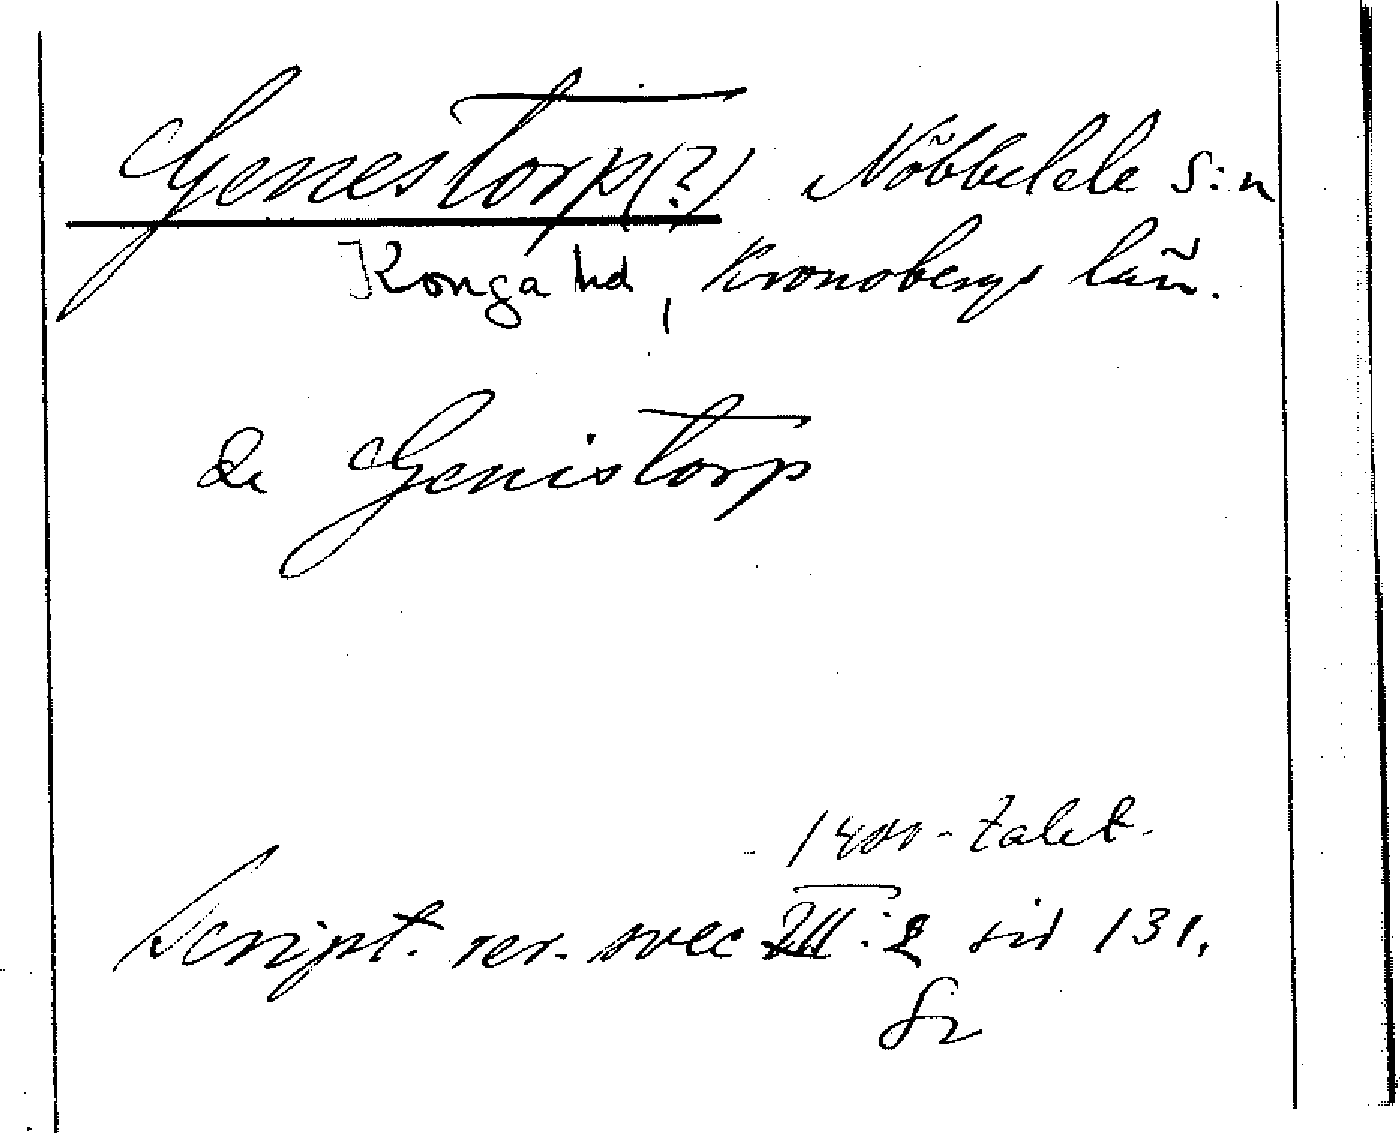 Genestorp(?) Nöbbelele S:n
Konga hd, Kronobergs län.
de Genistorp
1400-talet.
Script. rer. svec III:2 sid 131.